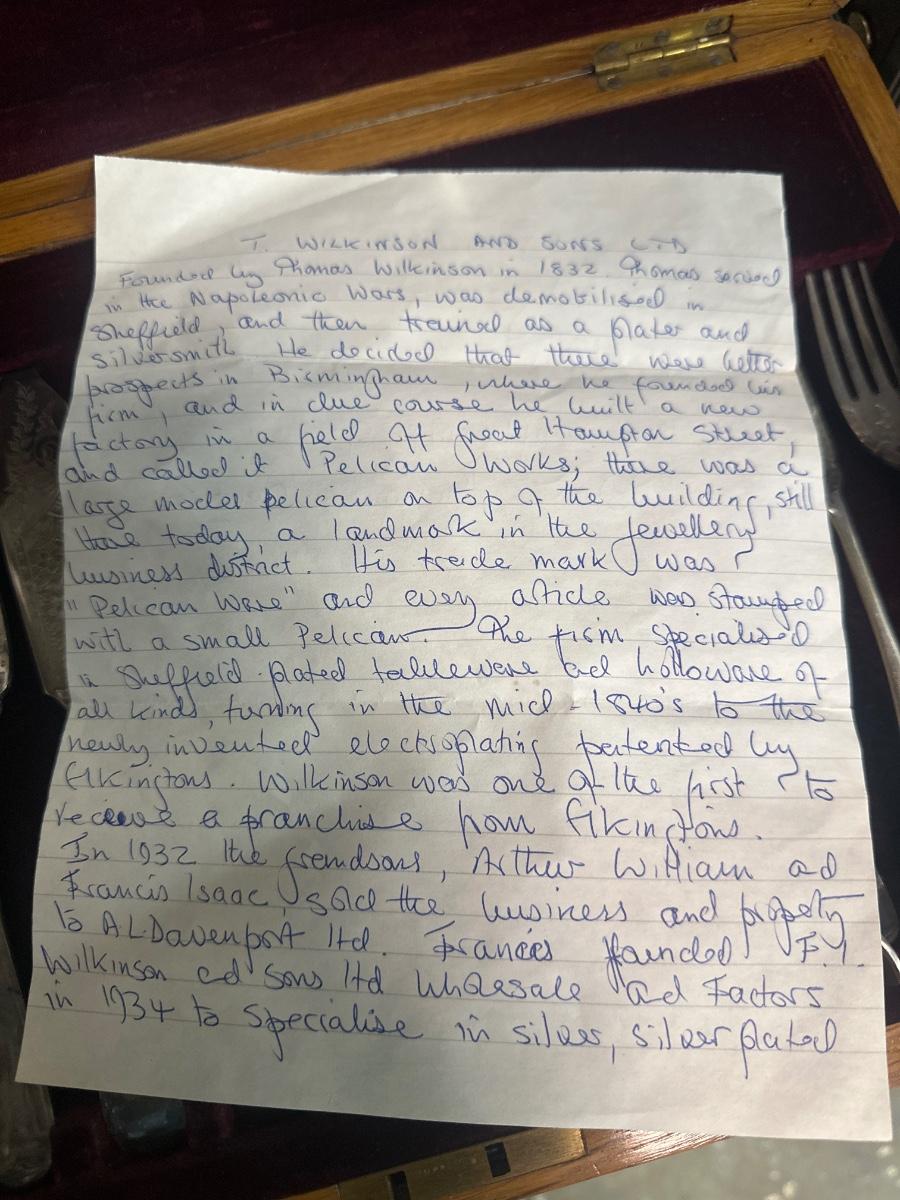 T. WILKINSON AND SONS LTD
Founded by Thomas Wilkinson in 1832. Thomas served
in the Napoleonic Wars, was demobilised in
Sheffield, and then trained as a plater and
silversmith. He decided that there were better
prospects in Birmingham, where he founded his
firm, and in due course he built a new
factory in a field off Great Hampton Street,
and called it Pelican Works; there was a
large model pelican on top of the building, still
there today, a landmark in the Jewellery
business district. His trade mark was
"Pelican Ware" and every article was stamped
with a small Pelican. The firm specialised
in Sheffield-plated tableware ad holloware of
all kinds, turning in the mid-1840's to the
newly invented electroplating patented by
Elkingtons. Wilkinson was one of the first to
receive a franchise from Elkingtons.
In 1932 the grandsons, Arthur William ad
Francis Isaac, sold the business and property
to A.L. Davenport ltd. Frances founded F.I.
Wilkinson ad Sons ltd Wholesale ad Factors
in 1934 to specialise in silver, silver plated